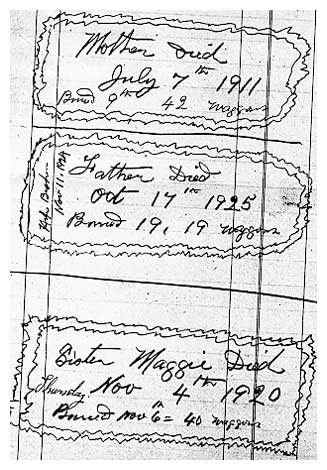 Mother Died
July 7th 1911
Buried 9th 42 Waggons
Father Died
Oct 17th 1925
Buried 19, 19 Waggons
Nov 11, 1924
Sister Maggie Died
Thursday Nov 4th 1920
Buried Nov 6 = 40 Waggons